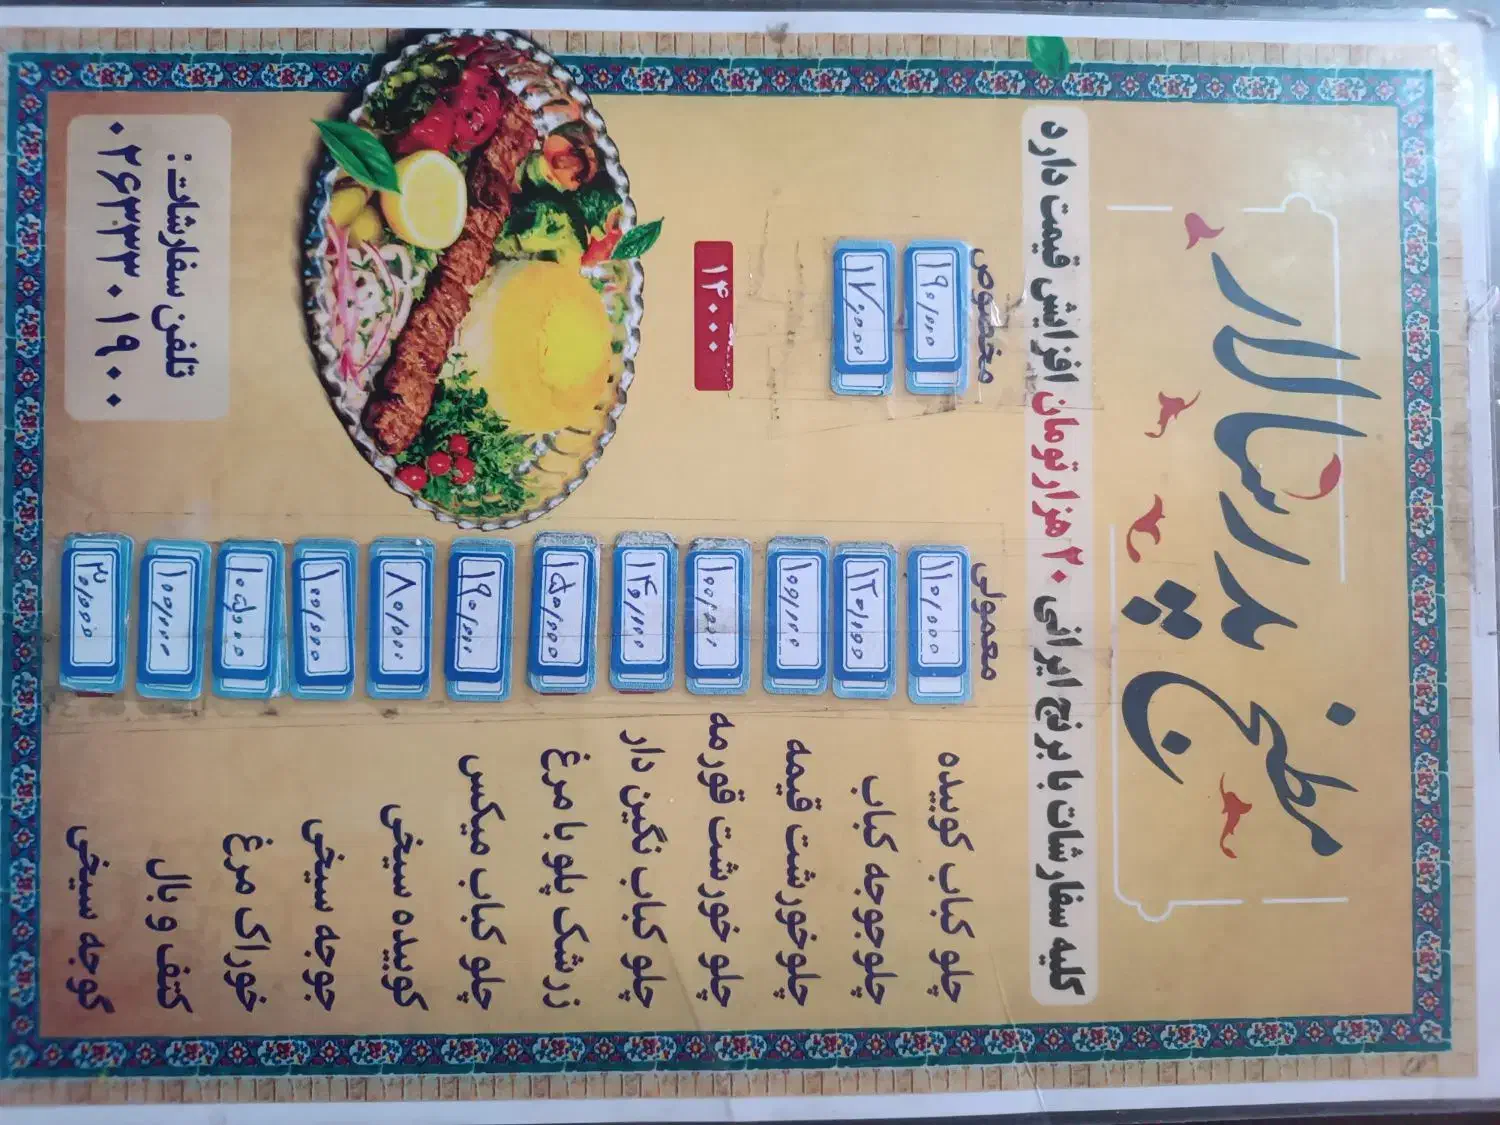 مطبخ پدرسالار
کلیه سفارشات با برنج ایرانی ۲۰ هزار تومان افزایش قیمت دارد
معمولی مخصوص
چلو کباب کوبیده ۱۱۰/۰۰۰ ۱۹۰/۰۰۰
چلوجوجه کباب ۱۲۰/۰۰۰ ۱۷۰/۰۰۰
چلوخورشت قیمه ۱۰۰/۰۰۰
چلو خورشت قورمه ۱۰۰/۰۰۰ ۱۴۰۰۰۰
چلو کباب نگین دار ۱۴۰/۰۰۰
زرشک پلو با مرغ ۱۵۰/۰۰۰
چلو کباب میکس ۱۹۰/۰۰۰
کوبیده سیخی ۸۰/۰۰۰
جوجه سیخی ۱۰۰/۰۰۰
خوراک مرغ ۱۰۵/۰۰۰
کتف و بال ۱۰۰/۰۰۰
گوجه سیخی ۳۰/۰۰۰
تلفن سفارشات:
۰۲۶۳۳۳۰۱۹۰۰